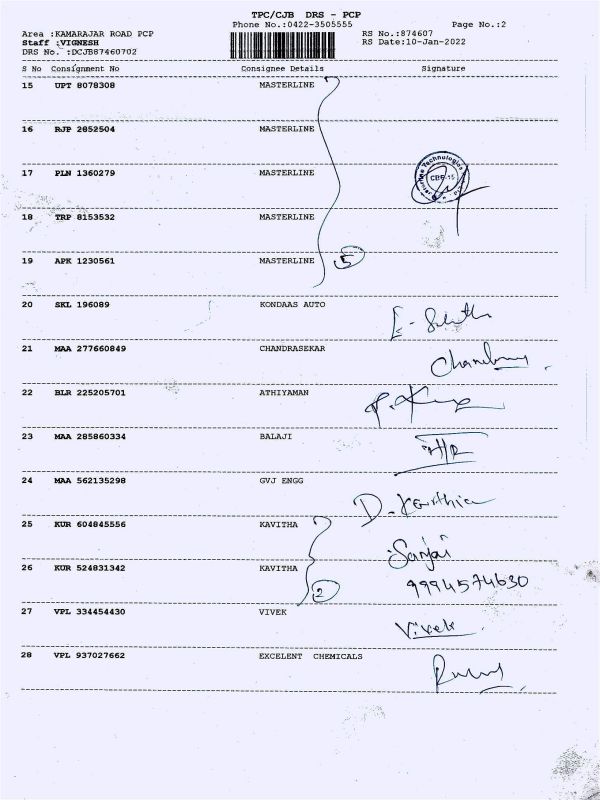 TPC/CJB DRS - PCP
Phone No.:0422-3505555 Page No.:2
Area :KAMARAJAR ROAD PCP RS No.:874607
Staff :VIGNESH RS Date:10-Jan-2022
DRS No. :DCJB87460702
S No Consignment No Consignee Details Signature
15 UPT 8078308 MASTERLINE
16 RJP 2852504 MASTERLINE
17 PLN 1360279 MASTERLINE
18 TRP 8153532 MASTERLINE
19 APK 1230561 MASTERLINE 5
20 SKL 196089 KONDAAS AUTO
21 MAA 277660849 CHANDRASEKAR
22 BLR 225205701 ATHIYAMAN
23 MAA 285860334 BALAJI
24 MAA 562135298 GVJ ENGG
D. Karthic
25 KUR 604845556 KAVITHA
Sanjai
26 KUR 524831342 KAVITHA 2 9994574630
27 VPL 334454430 VIVEK
Vivek
28 VPL 937027662 EXCELENT CHEMICALS